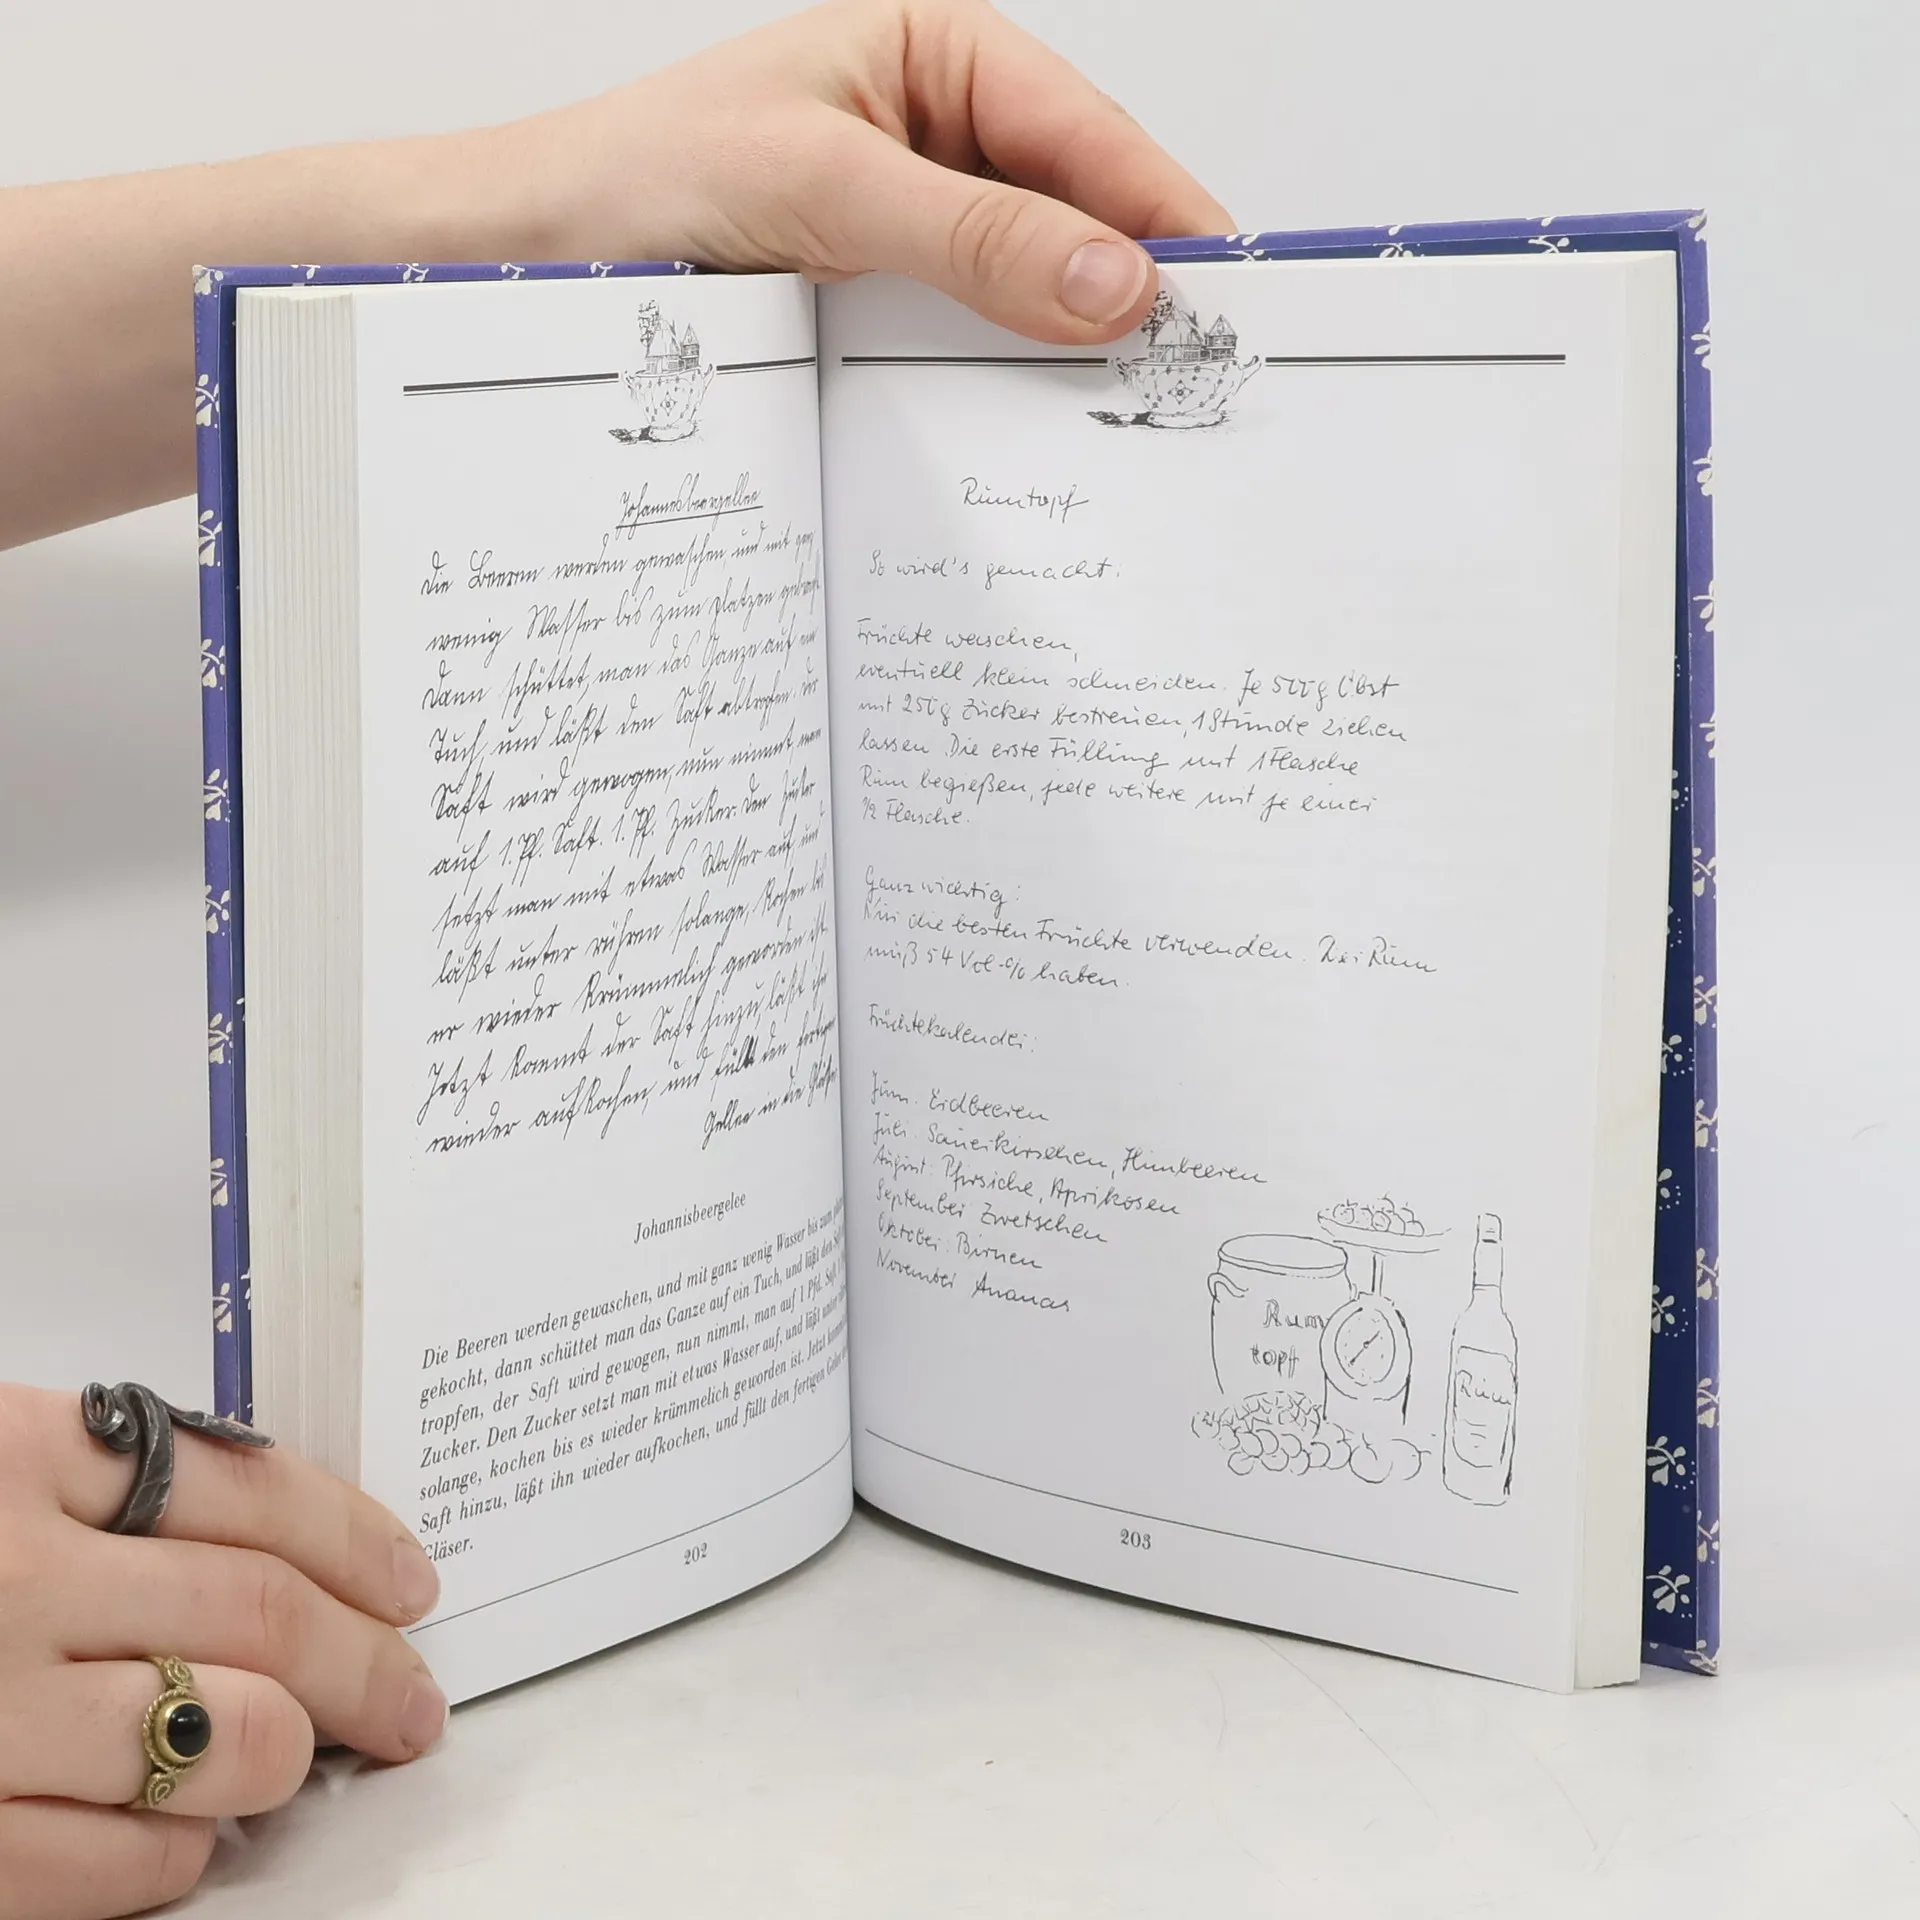 Johannesbeergellee
Die Beeren werden gewaschen, und mit ganz
wenig Wasser bis zum platzen gekocht
Dann schüttet, man das Ganze auf ein
Tuch, und läßt den Saft abtropfen. Der
Saft wird gewogen, nun nimmt, man
auf 1. Pf. Saft. 1. Pf. Zucker. Den Zucker
setzt man mit etwas Wasser auf, und
läßt unter rühren solange, kochen bis
er wieder krümmelich geworden ist.
Jetzt kommt der Saft hinzu, läßt ihn
wieder aufkochen, und füllt den fertigen
Gellee in die Gläser
Johannisbeergelee
Die Beeren werden gewaschen, und mit ganz wenig Wasser bis zum
gekocht, dann schüttet man das Ganze auf ein Tuch, und läßt den Saft
tropfen, der Saft wird gewogen, nun nimmt, man auf 1 Pfd. Saft 1
Zucker. Den Zucker setzt man mit etwas Wasser auf, und läßt unter
solange, kochen bis es wieder krümmelich geworden ist. Jetzt kommt
Saft hinzu, läßt ihn wieder aufkochen, und füllt den fertigen Gelee
Gläser.
202
Rumtopf
So wird's gemacht:
Früchte waschen,
eventuell klein schneiden. Je 500g Obst
mit 250g Zucker bestreuen, 1 Stunde ziehen
lassen. Die erste Füllung mit 1 Flasche
Rum begießen, jede weitere mit je einer
1/2 Flasche.
Ganz wichtig:
Nur die besten Früchte verwenden. Der Rum
muß 54 Vol-% haben.
Früchtekalender:
Juni: Erdbeeren
Juli: Sauerkirschen, Himbeeren
August: Pfirsiche, Aprikosen
September Zwetschen
Oktober: Birnen
November Ananas
Rum
topf
Rum
203